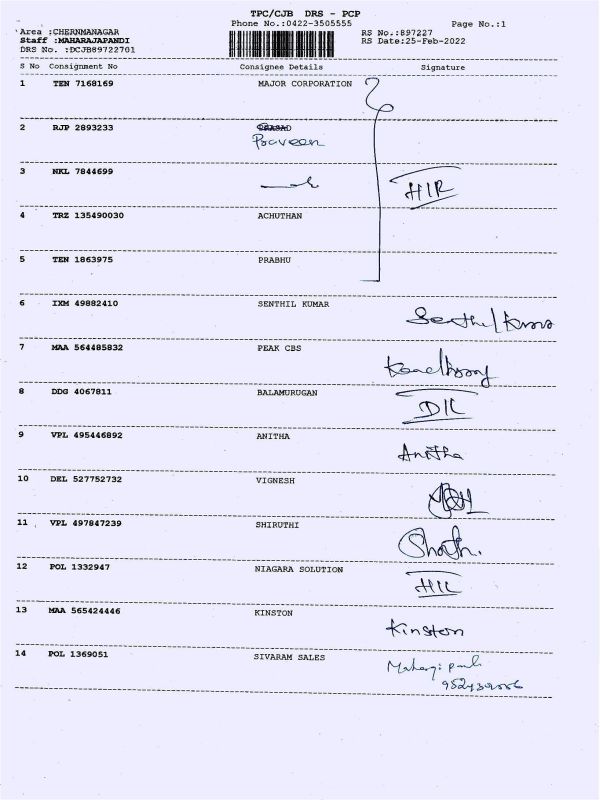 TPC/CJB DRS - PCP
Phone No.:0422-3505555 Page No.:1
Area :CHERNMANAGAR RS No.:897227
Staff :MAHARAJAPANDI RS Date:25-Feb-2022
DRS No. :DCJB89722701
S No Consignment No Consignee Details Signature
1 TEN 7168169 MAJOR CORPORATION
2 RJP 2893233 PRASAD
Praveen
3 NKL 7844699 HIR
4 TRZ 135490030 ACHUTHAN
5 TEN 1863975 PRABHU
6 IXM 49882410 SENTHIL KUMAR
7 MAA 564485832 PEAK CBS
8 DDG 4067811 BALAMURUGAN
9 VPL 495446892 ANITHA Anitha
10 DEL 527752732 VIGNESH
11 VPL 497847239 SHIRUTHI
12 POL 1332947 NIAGARA SOLUTION
13 MAA 565424446 KINSTON Kinston
14 POL 1369051 SIVARAM SALES